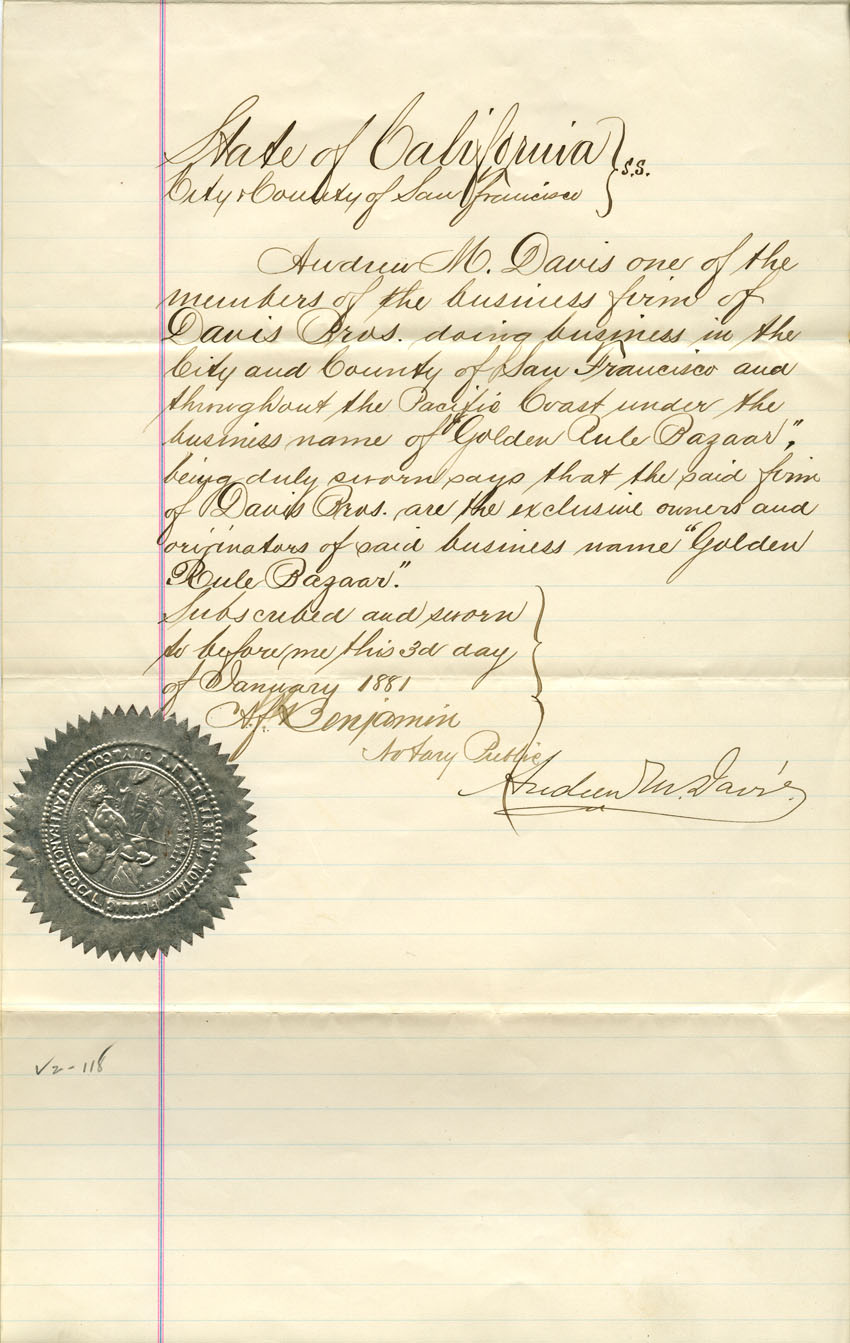 State of California } S.S.
City & County of San Francisco
Andrew M. Davis one of the
members of the business firm of
Davis Bros. doing business in the
City and County of San Francisco and
throughout the Pacific Coast under the
business name of "Golden Rule Bazaar",
being duly sworn says that the said firm
of Davis Bros. are the exclusive owners and
originators of said business name "Golden
Rule Bazaar".
Subscribed and sworn
to before me this 3d day
of January 1881
Benjamin
Notary Public
Andrew M. Davis
NOTARY PUBLIC
SAN FRANCISCO, CAL.
V2-118